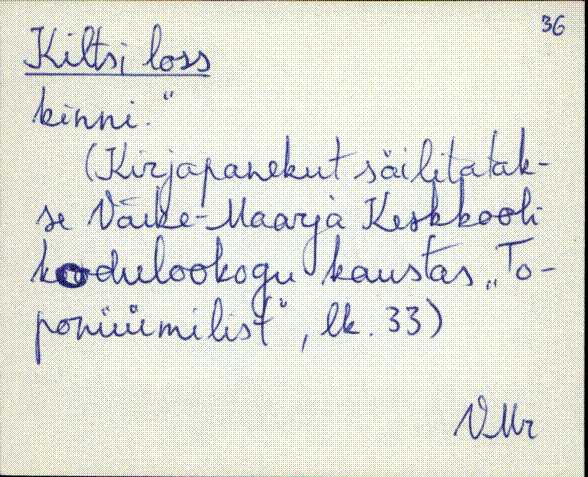 36
Kiltsi loss
kinni."
(Kirjapanekut säilitatak-
se Väike-Maarja Keskkooli
kodulookogu kaustas „To-
ponüümilist", lk. 33)
VMr